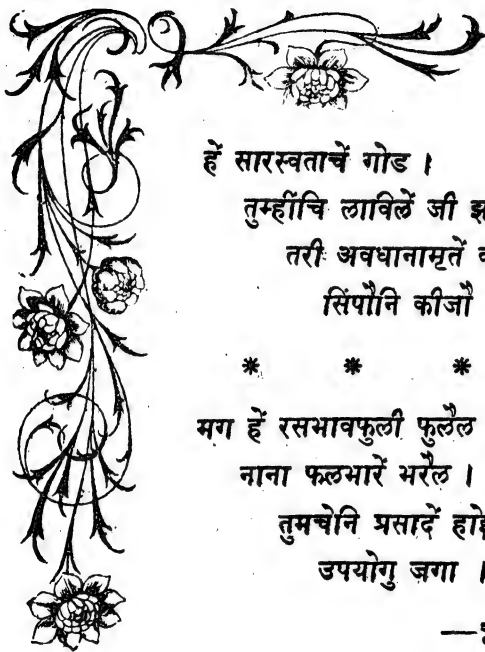 हें सारस्वताचें गोड ।
तुम्हींचि लाविलें जी
तरी अवधानामृतें
सिंपौनि कीजौ
* * *
मग हें रसभावफुली फुलैल
नाना फलभारें भरैल ।
तुमचेनि प्रसादें
उपयोगु जगा ।